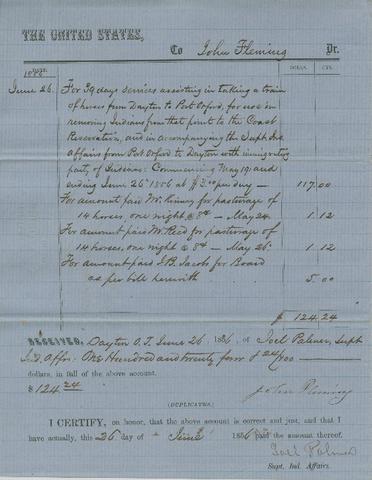 THE UNITED STATES,
To John Fleming Dr.
DATE. DOLLS. CTS.
1856
June 26. For 39 days services assisting in taking a train
of horses from Dayton to Port Orford, for use in
removing Indians from that point to the Coast
Reservation, and in accompanying the Supt. Ind.
Affairs from Port Orford to Dayton with immigrating
party of Indians: Commencing May 19, and
ending June 26" 1856 @ $3.00 per day — 117.00
For amount paid Mr. Kinney for pasturage of
14 horses, one night @ 8¢ — May 24. 1.12
For amount paid W. Reed for pasturage of
14 horses, one night @ 8¢ — May 26. 1.12
For amount paid J.B. Jacobs for Board
as per bill herewith 5.00
$ 124.24
RECEIVED, Dayton O.T. June 26 1856, of Joel Palmer, Supt
Ind. Affrs. One Hundred and twenty four & 24/100
dollars, in full of the above account.
$ 124.24
John Fleming
(DUPLICATES.)
I CERTIFY, on honor, that the above account is correct and just, and that I
have actually, this 26 day of June 1856 paid the amount thereof.
Joel Palmer
Supt. Ind. Affairs.